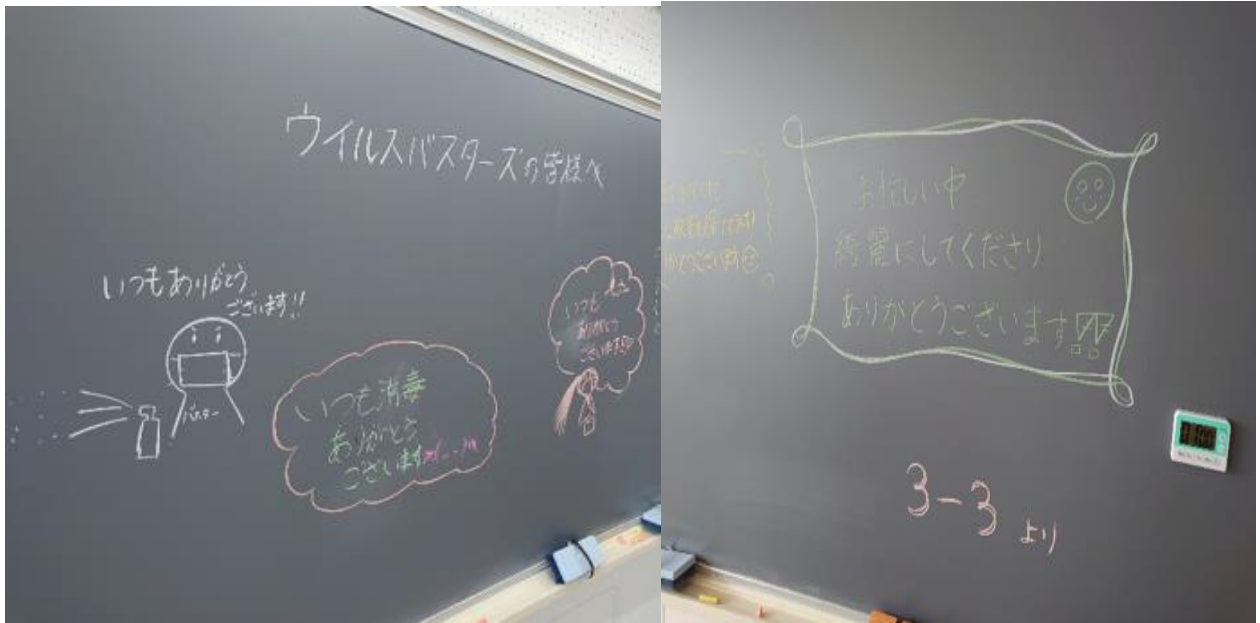 ウイルスバスターズの皆様へ
いつもありがとう
ございます!!
バスター
いつも消毒
ありがとう
ございます
いつも
ありがとう
ございます
お忙しい中
綺麗にしてくださり
ありがとうございます!!
3-3 より